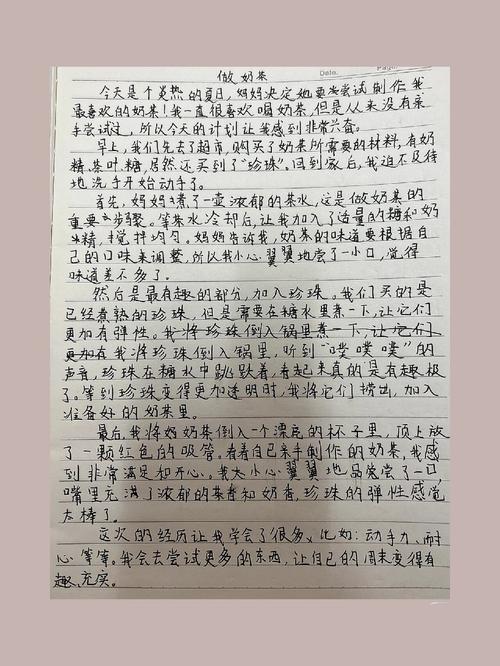 Date.
Page.
做奶茶
今天是个炎热的夏日，妈妈决定她要尝试制作我
最喜欢的奶茶！我一直很喜欢喝奶茶，但是从来没有亲
手尝试过，所以今天的计划让我感到非常兴奋。
早上，我们先去了超市，购买了奶茶所需要的材料，有奶
精、茶叶、糖，居然还买到了"珍珠"。回到家后，我迫不及待
地洗手开始动手了。
首先，妈妈煮了一壶浓郁的茶水，这是做奶茶的
重要步骤。等茶水冷却后，让我加入了适量的糖和奶
精，搅拌均匀。妈妈告诉我，奶茶的味道要根据自
己的口味来调整，所以我小心翼翼地尝了一小口，觉得
味道差不多了。
然后是最有趣的部分，加入珍珠。我们买的是
已经煮熟的珍珠，但是需要在糖水里煮一下，让它们
更加有弹性。我将珍珠倒入锅里煮一下，让它们
更加有我将珍珠倒入锅里，听到"噗噗噗"的
声音，珍珠在糖水中跳跃着，看起来真的是有趣极
了。等到珍珠变得更加透明时，我将它们捞出，加入
准备好的奶茶里。
最后，我将奶茶倒入一个漂亮的杯子里，顶上放
了一颗红色的吸管。看着自己亲手制作的奶茶，我感
到非常满足和开心。我小心翼翼地品尝了一口
嘴里充满了浓郁的茶香和奶香，珍珠的弹性感觉
太棒了。
这次的经历让我学会了很多，比如：动手力、耐
心等等。我会去尝试更多的东西，让自己的周末变得有
趣、充实。